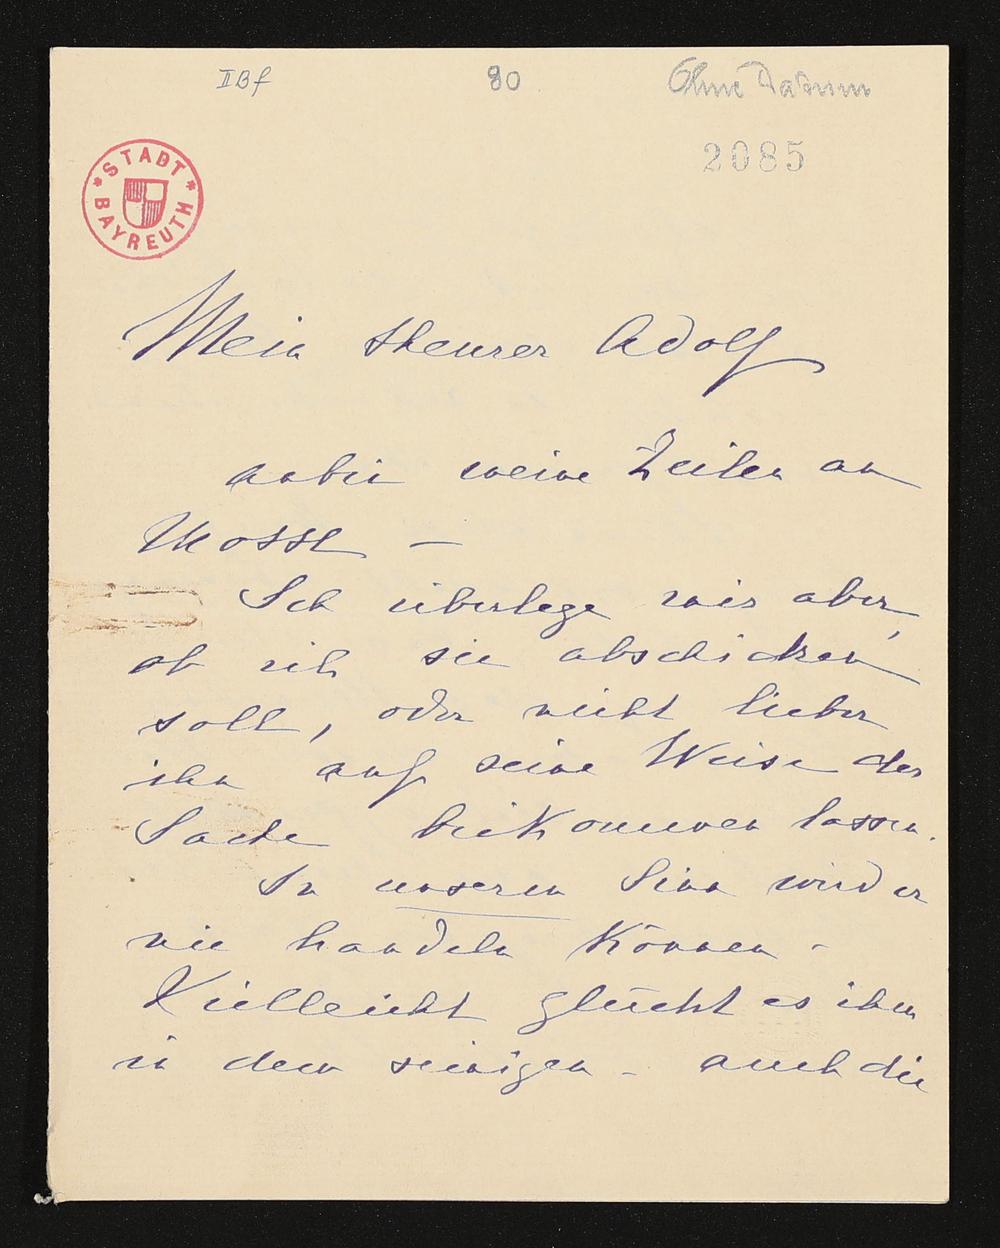 II Bf 80 Ohne Datum
2085
STADT BAYREUTH
Mein theurer Adolf
anbei meine Zeilen an
Mossl —
Ich überlege mir aber,
ob ich sie abschicken
soll, oder nicht lieber
ihn auf seine Weise der
Sache beikommen lassen.
In unserem Sinn wird er
nie handeln können -
Vielleicht glückt es ihm
in dem seinigen - auch die